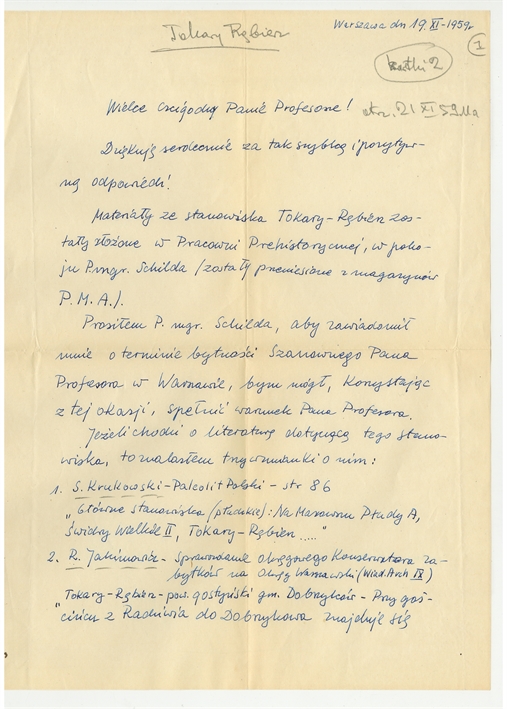 Tokary Rębierz
Warszawa dn 19. XI - 1959r
1
kartki 2
Wielce Czcigodny Panie Profesorze!
otrz. 21 XI 59
Dziękuję serdecznie za tak szybką i pozytyw-
ną odpowiedź!
Materiały ze stanowiska Tokary-Rębierz zos-
tały złożone w Pracowni Prehistorycznej, w poko-
ju P. mgr. Schilda /zostały przeniesione z magazynów
P.M.A./.
Prosiłem P. mgr. Schilda, aby zawiadomił
mnie o terminie bytności Szanownego Pana
Profesora w Warszawie, bym mógł, korzystając
z tej okazji, spełnić warunek Pana Profesora.
Jeżeli chodzi o literaturę dotyczącą tego stano-
wiska, to znalazłem trzy wzmianki o nim:
1. S. Krukowski - Paleolit Polski - str 86
"Główne stanowiska (płudzkie): Na Mazowszu Płudy A,
Świdry Wielkie II, Tokary-Rębierz....."
2. R. Jakimowicz - Sprawozdanie okręgowego Konserwatora za-
bytków na okręg Warszawski (Wiad. Arch IX)
"Tokary-Rębierz - pow. gostyniński gm. Dobrzyków - Przy goś-
cińcu z Radziwia do Dobrzykowa znajduje się